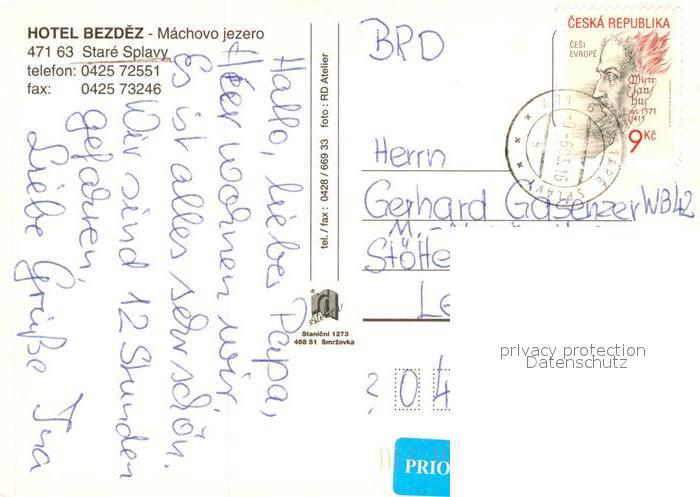 HOTEL BEZDĚZ - Máchovo jezero
471 63 Staré Splavy
telefon: 0425 72551
fax: 0425 73246
Hallo, liebes Papa,
Hier wohnen wir
Es ist alles sehr schön.
Wir sind 12 Stunden
gefahren,
Liebe Grüße
tel./fax: 0428/669 33 foto: RD Atelier
rd
Staniční 1273
468 51 Smržovka
BRD
ČESKÁ REPUBLIKA
ČEŠI
EVROPĚ
Mistr
Jan
Hus
1371
1415
9 Kč
STARÉ SPLAVY
Herrn
Gerhard Gasenzer WB42
M.-
Stötte
Le
? 04
PRIO
privacy protection
Datenschutz